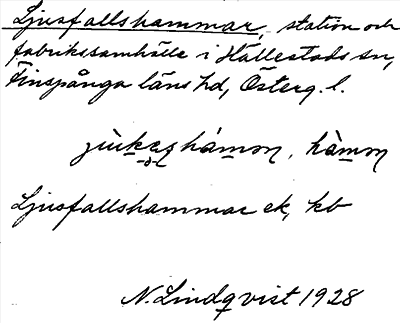 Ljusfallshammar, station och
fabrikssamhälle i Hällestads sn,
Finspånga läns hd, Österg. l.
hàmon
Ljusfallshammar ek, kb
N. Lindqvist 1928